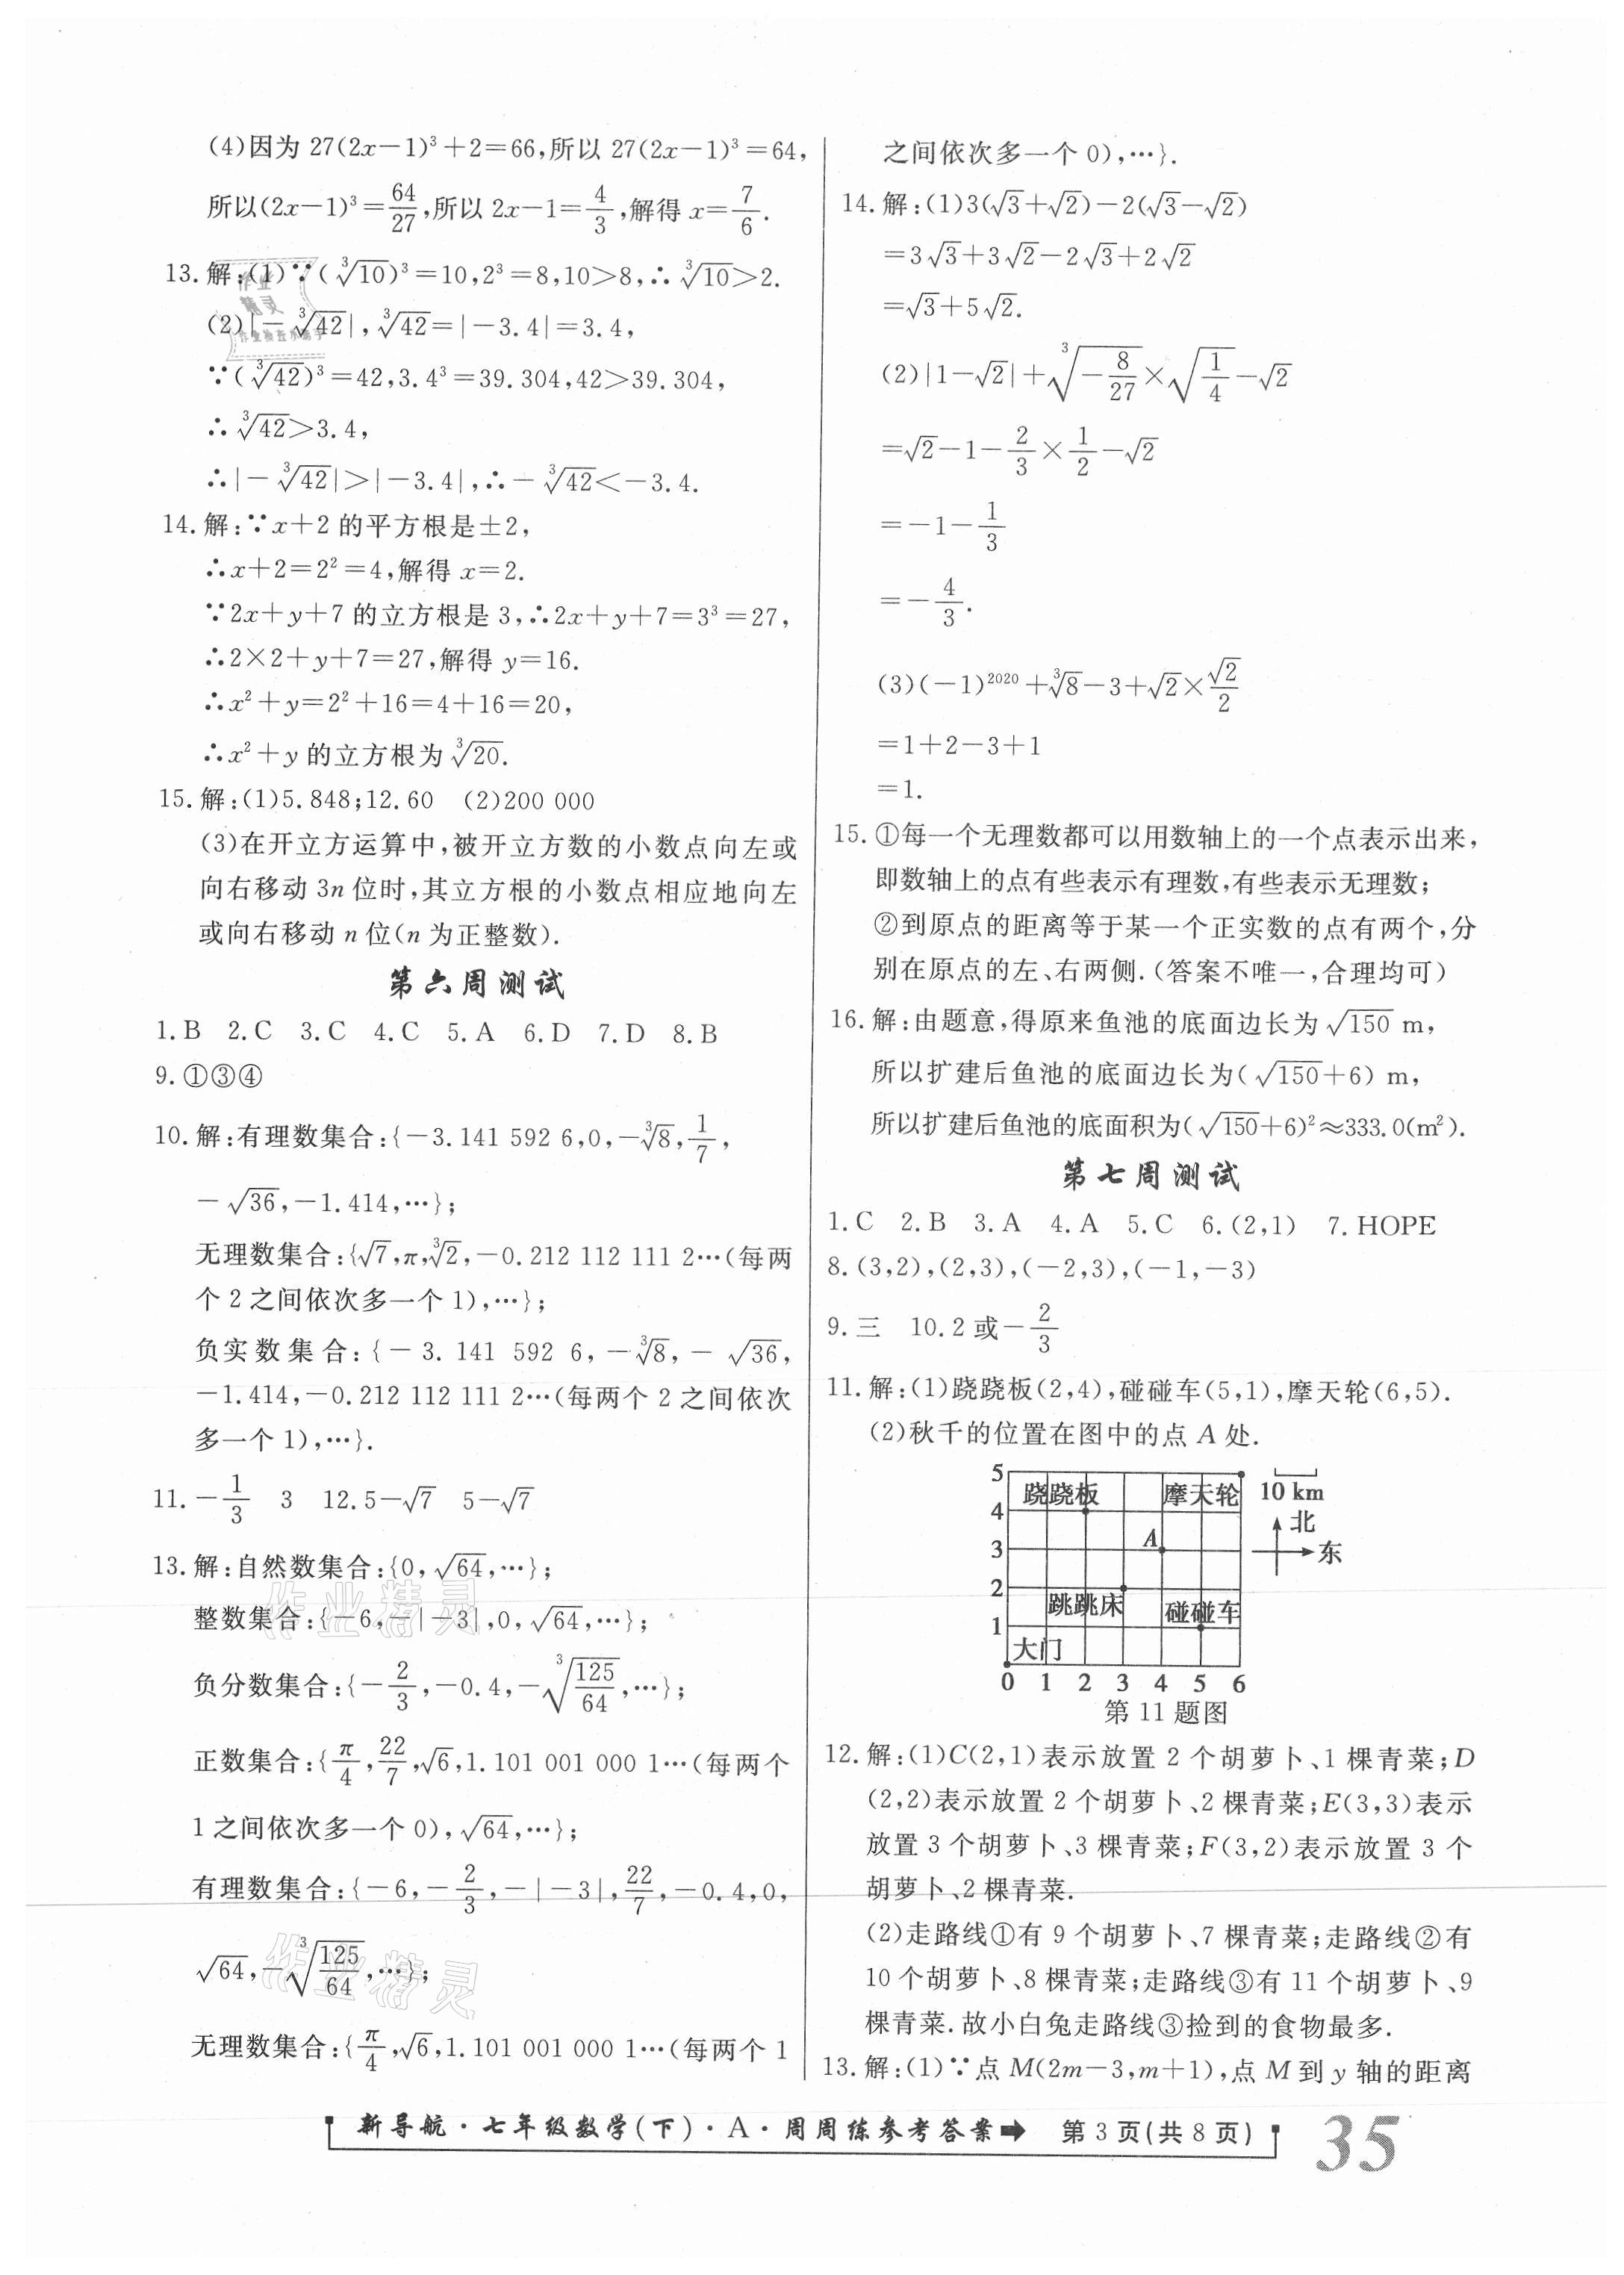 (4)因为 27(2x-1)³+2=66,所以 27(2x-1)³=64,
所以(2x-1)³=64/27,所以 2x-1=4/3,解得 x=7/6.
13.解:(1)∵(∛10)³=10,2³=8,10>8,∴∛10>2.
(2)|-∛42|,∛42=|-3.4|=3.4,
∵(∛42)³=42,3.4³=39.304,42>39.304,
∴∛42>3.4,
∴|-∛42|>|-3.4|,∴-∛42<-3.4.
14.解:∵x+2 的平方根是±2,
∴x+2=2²=4,解得 x=2.
∵2x+y+7 的立方根是 3,∴2x+y+7=3³=27,
∴2×2+y+7=27,解得 y=16.
∴x²+y=2²+16=4+16=20,
∴x²+y 的立方根为∛20.
15.解:(1)5.848;12.60 (2)200 000
(3)在开立方运算中,被开立方数的小数点向左或
向右移动 3n 位时,其立方根的小数点相应地向左
或向右移动 n 位(n 为正整数).
第六周测试
1.B 2.C 3.C 4.C 5.A 6.D 7.D 8.B
9.①③④
10.解:有理数集合:{-3.141 592 6,0,-∛8,1/7,
-√36,-1.414,…};
无理数集合:{√7,π,∛2,-0.212 112 111 2…(每两
个 2 之间依次多一个 1),…};
负实数集合:{-3.141 592 6,-∛8,-√36,
-1.414,-0.212 112 111 2…(每两个 2 之间依次
多一个 1),…}.
11.-1/3 3 12.5-√7 5-√7
13.解:自然数集合:{0,√64,…};
整数集合:{-6,-|-3|,0,√64,…};
负分数集合:{-2/3,-0.4,-∛(125/64),…};
正数集合:{π/4,22/7,√6,1.101 001 000 1…(每两个
1 之间依次多一个 0),√64,…};
有理数集合:{-6,-2/3,-|-3|,22/7,-0.4,0,
√64,-∛(125/64),…};
无理数集合:{π/4,√6,1.101 001 000 1…(每两个 1
之间依次多一个 0),…}.
14.解:(1)3(√3+√2)-2(√3-√2)
=3√3+3√2-2√3+2√2
=√3+5√2.
(2)|1-√2|+∛(-8/27)×√(1/4)-√2
=√2-1-2/3×1/2-√2
=-1-1/3
=-4/3.
(3)(-1)²⁰²⁰+∛8-3+√2×√2/2
=1+2-3+1
=1.
15.①每一个无理数都可以用数轴上的一个点表示出来,
即数轴上的点有些表示有理数,有些表示无理数;
②到原点的距离等于某一个正实数的点有两个,分
别在原点的左、右两侧.(答案不唯一,合理均可)
16.解:由题意,得原来鱼池的底面边长为√150 m,
所以扩建后鱼池的底面边长为(√150+6) m,
所以扩建后鱼池的底面积为(√150+6)²≈333.0(m²).
第七周测试
1.C 2.B 3.A 4.A 5.C 6.(2,1) 7.HOPE
8.(3,2),(2,3),(-2,3),(-1,-3)
9.三 10.2或-2/3
11.解:(1)跷跷板(2,4),碰碰车(5,1),摩天轮(6,5).
(2)秋千的位置在图中的点 A 处.
5
跷跷板 摩天轮 10 km
4
北
3 A 东
2
跳跳床 碰碰车
1
大门
0 1 2 3 4 5 6
第 11 题图
12.解:(1)C(2,1)表示放置 2 个胡萝卜、1 棵青菜;D
(2,2)表示放置 2 个胡萝卜、2 棵青菜;E(3,3)表示
放置 3 个胡萝卜、3 棵青菜;F(3,2)表示放置 3 个
胡萝卜、2 棵青菜.
(2)走路线①有 9 个胡萝卜、7 棵青菜;走路线②有
10 个胡萝卜、8 棵青菜;走路线③有 11 个胡萝卜、9
棵青菜.故小白兔走路线③捡到的食物最多.
13.解:(1)∵点 M(2m-3,m+1),点 M 到 y 轴的距离
新导航·七年级数学(下)·A·周周练参考答案➡ 第 3 页(共 8 页)
35
作业
精灵
作业精灵
作业精灵